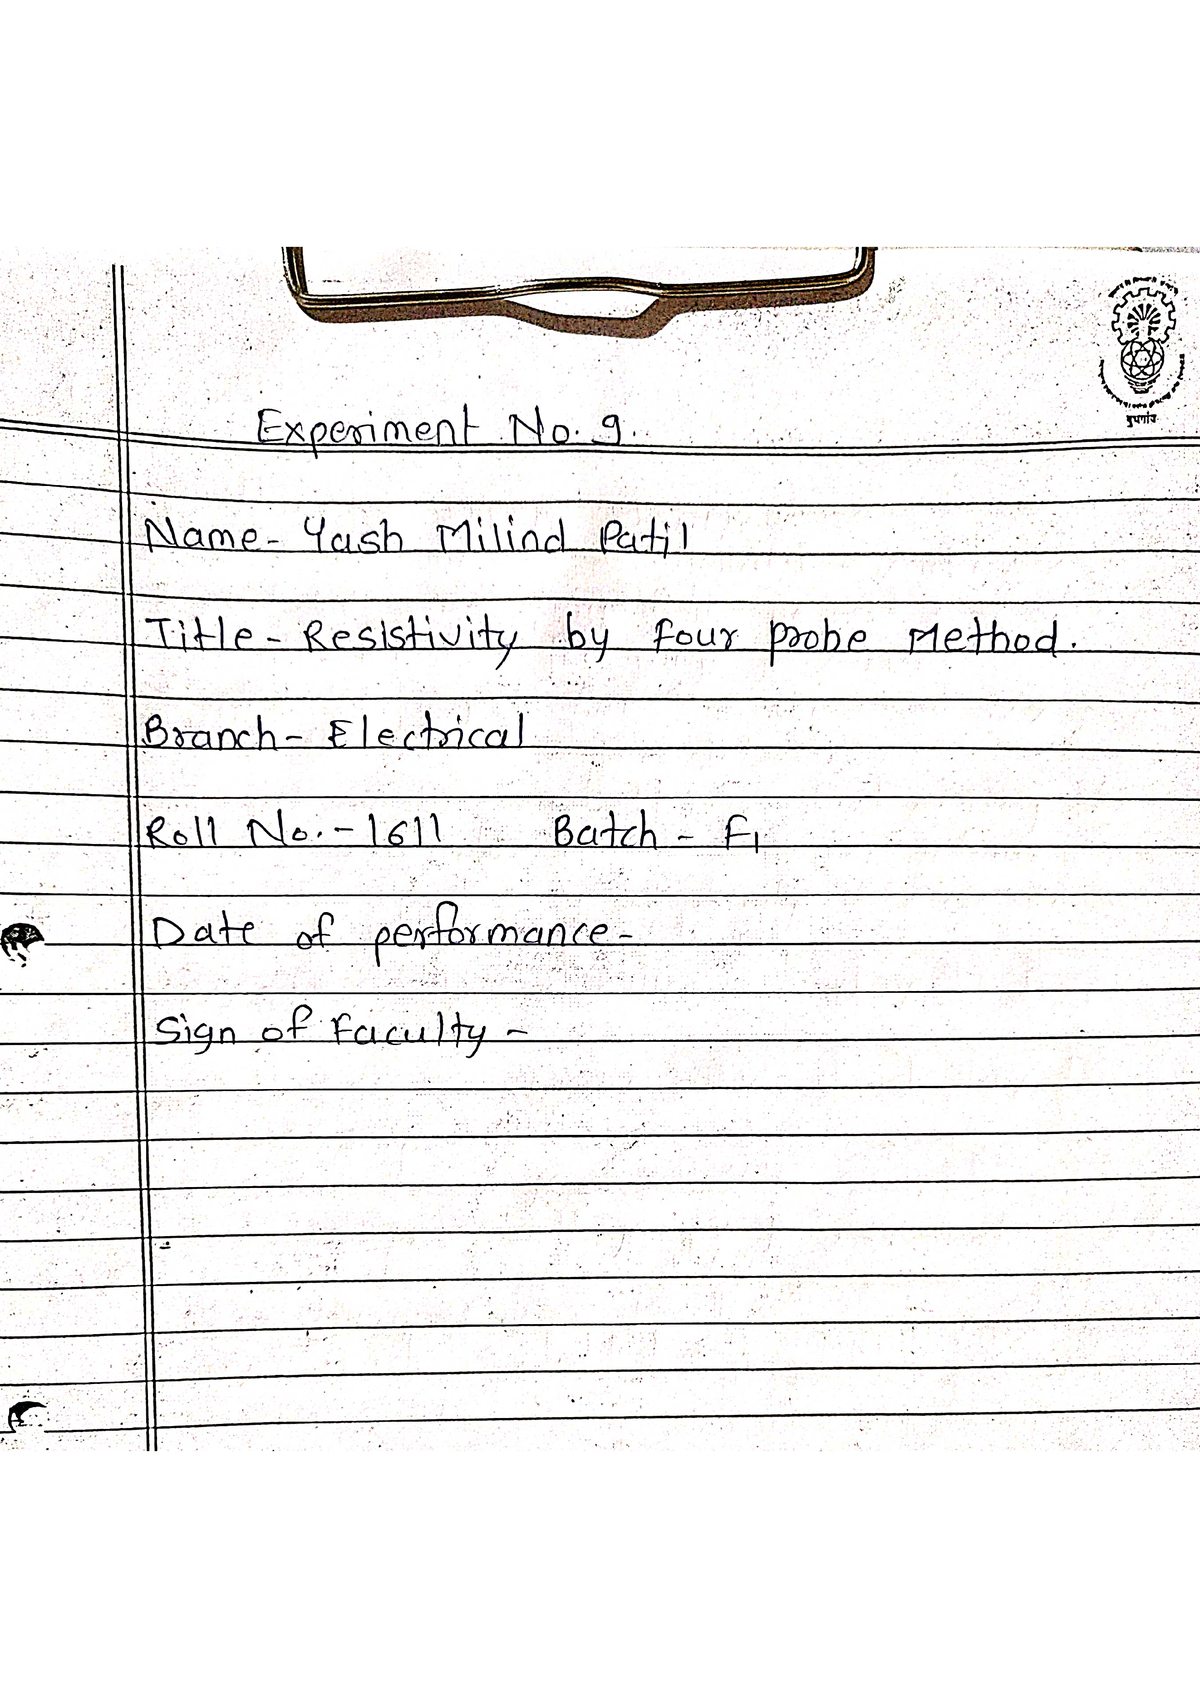 बुधगांव
Experiment No. 9.
Name- Yash Milind Patil
Title- Resistivity by Four probe Method.
Branch- Electrical
Roll No.-1611 Batch - F1
Date of performance-
Sign of Faculty -